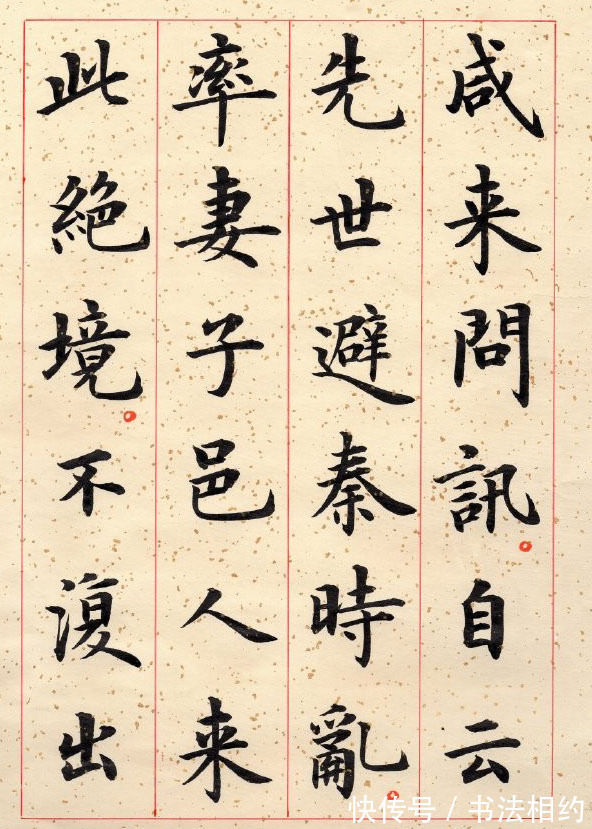 咸来問訊自云
先世避秦時亂
率妻子邑人来
此絶境不復出
快传号 / 书法相约